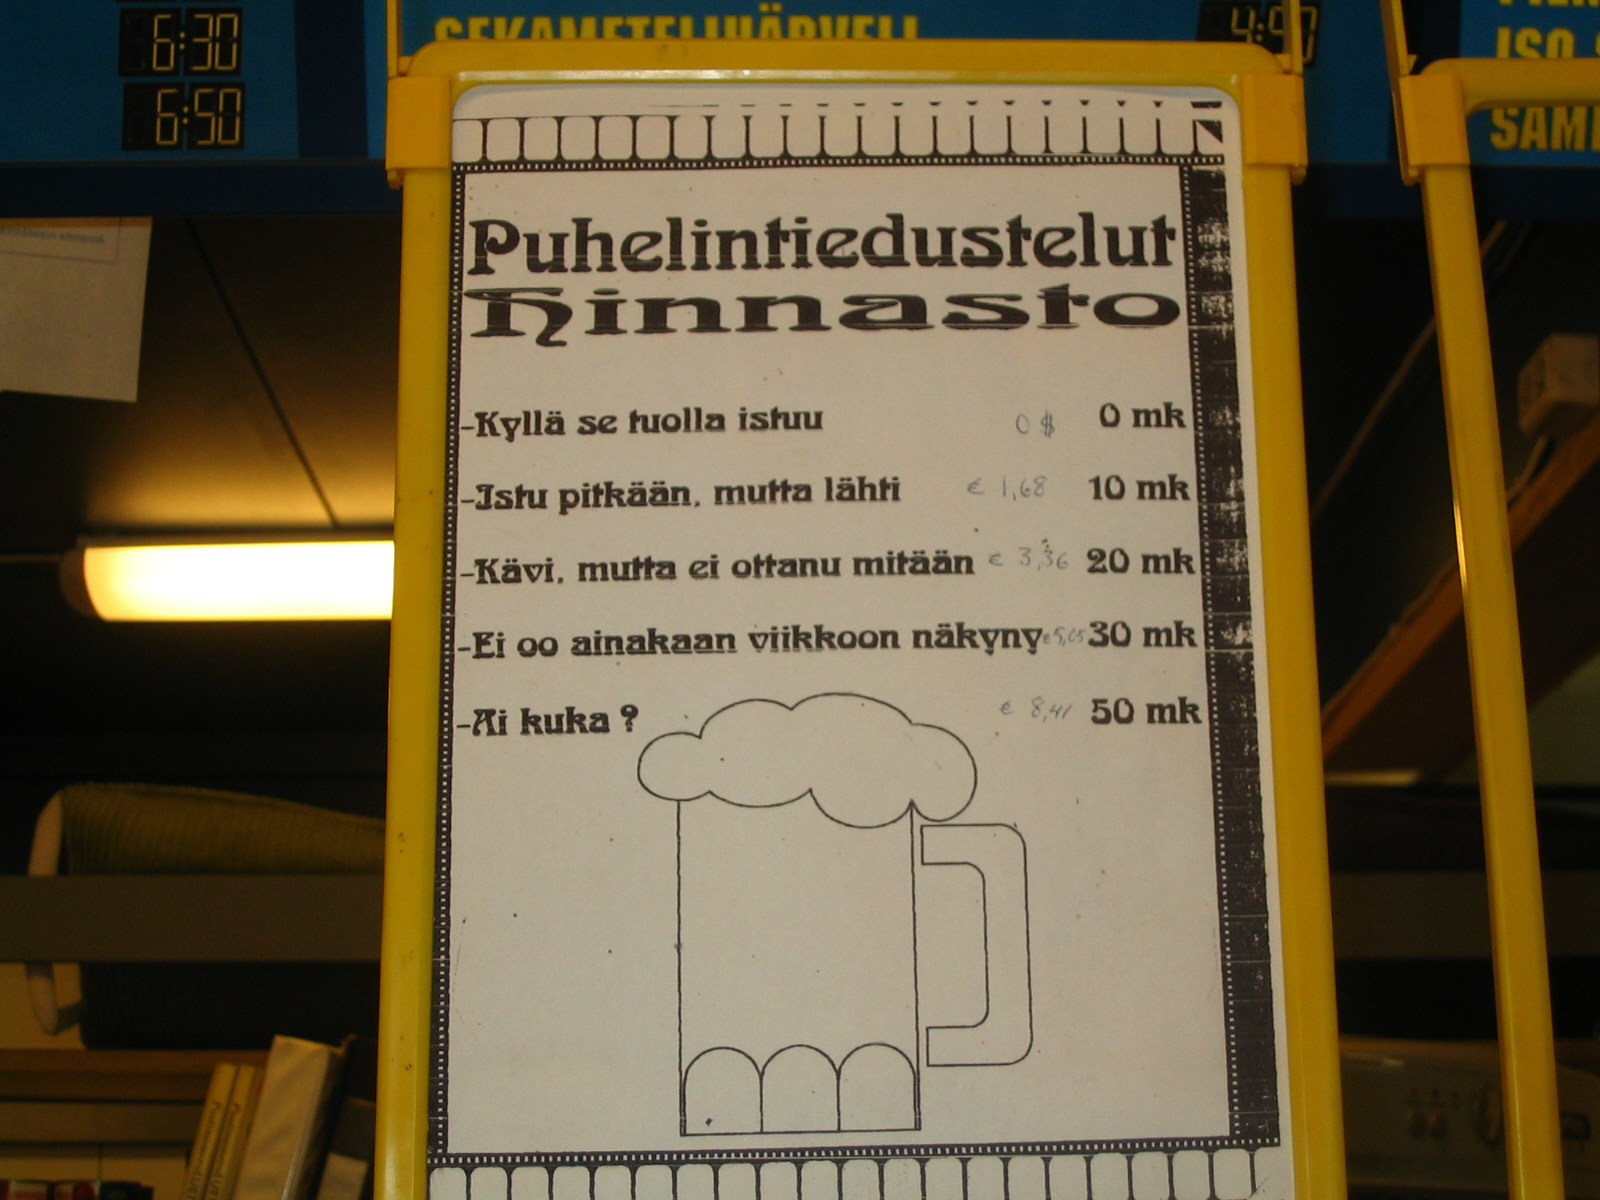 6:30
6:50
SEKAMETELIHÄRVELI
ISO
Puhelintiedustelut
hinnasto
-Kyllä se tuolla istuu 0 $ 0 mk
-Istu pitkään, mutta lähti € 1,68 10 mk
-Kävi, mutta ei ottanu mitään € 3,36 20 mk
-Ei oo ainakaan viikkoon näkyny € 5,05 30 mk
-Ai kuka ? € 8,41 50 mk